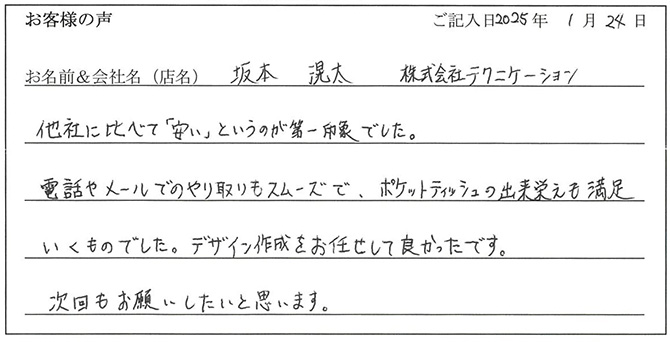 お客様の声 ご記入日2025年 1月 24日
お名前&会社名（店名） 坂本 滉太 株式会社テクニケーション
他社に比べて「安い」というのが第一印象でした。
電話やメールでのやり取りもスムーズで、ポケットティッシュの出来栄えも満足
いくものでした。デザイン作成をお任せして良かったです。
次回もお願いしたいと思います。